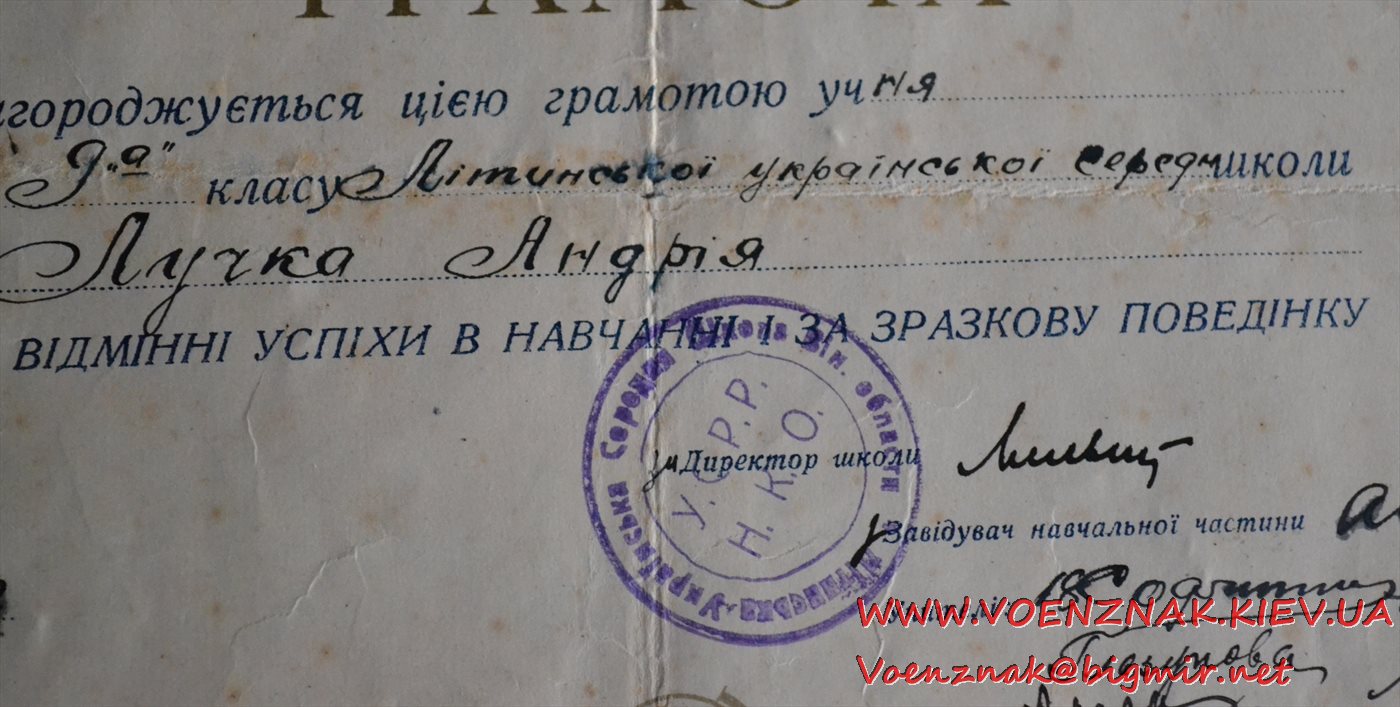 ГРАМОТА
агороджується цією грамотою учня
9 "а" класу Літинської української середн школи
Лучка Андрія
ВІДМІННІ УСПІХИ В НАВЧАННІ І ЗА ЗРАЗКОВУ ПОВЕДІНКУ
Літинська-Українська Середня Школа Він. області
У.С.Р.Р.
Н.К.О.
Директор школи
Завідувач навчальної частини
WWW.VOENZNAK.KIEV.UA
Voenznak@bigmir.net